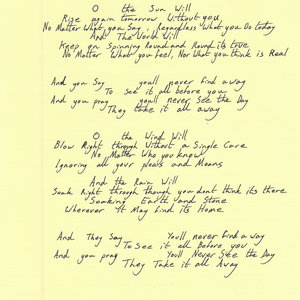 O the Sun Will
Rise again tomorrow Without you
No Matter What you Say, Regardless What you Do today
And The World Will
Keep on Spinning Round and Round its true
No Matter What you feel, Nor What you think is Real
And you Say you'll never find a way
To See it all before you
And you pray you'll never See the Day
They take it all away
O the Wind Will
Blow Right through Without a Single Care
No Matter Who you know
Ignoring all your pleas and Moans
And the Rain Will
Soak Right through though you dont think its there
Soaking Earth and Stone
Wherever It May find its Home
And They Say You'll never find a way
To See it all Before you
And you pray You'll Never See the Day
They Take it all Away